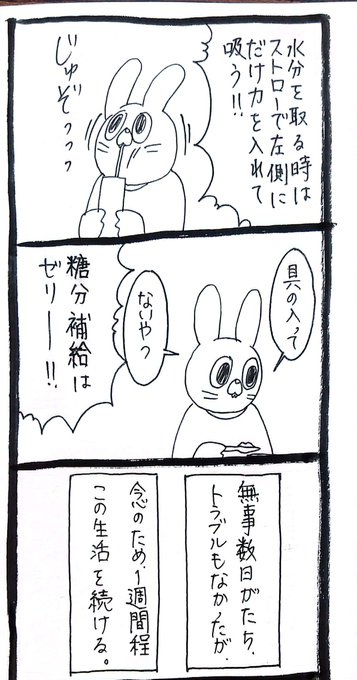 水分を取る時は
ストローで左側に
だけ力を入れて
吸う!!
じゅぞっっっ
具の入って
ないやつ
糖分補給は
ゼリー!!
無事数日がたち、
トラブルもなかったが、
念のため、1週間程
この生活を続ける。